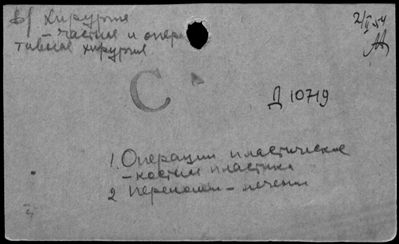 В/ Хирургия
2/II 54
- частная и опера
тивная хирургия
С
Д 10719
1. Операции пластические
- костная пластика
2 Переломы - лечение